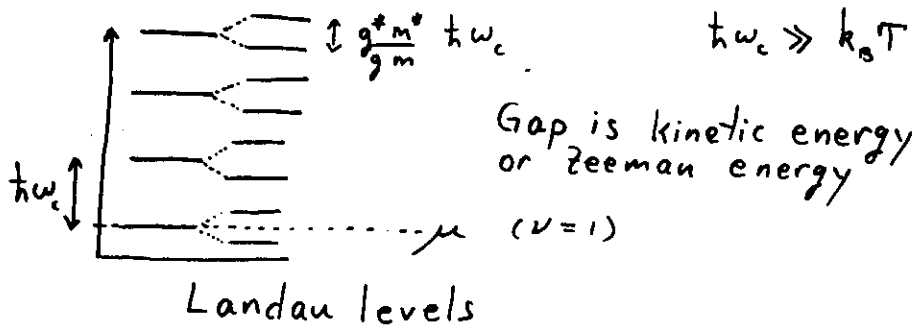 g* m* / g m ħω_c
ħω_c ≫ k_B T
Gap is kinetic energy
or Zeeman energy
ħω_c
μ (ν=1)
Landau levels